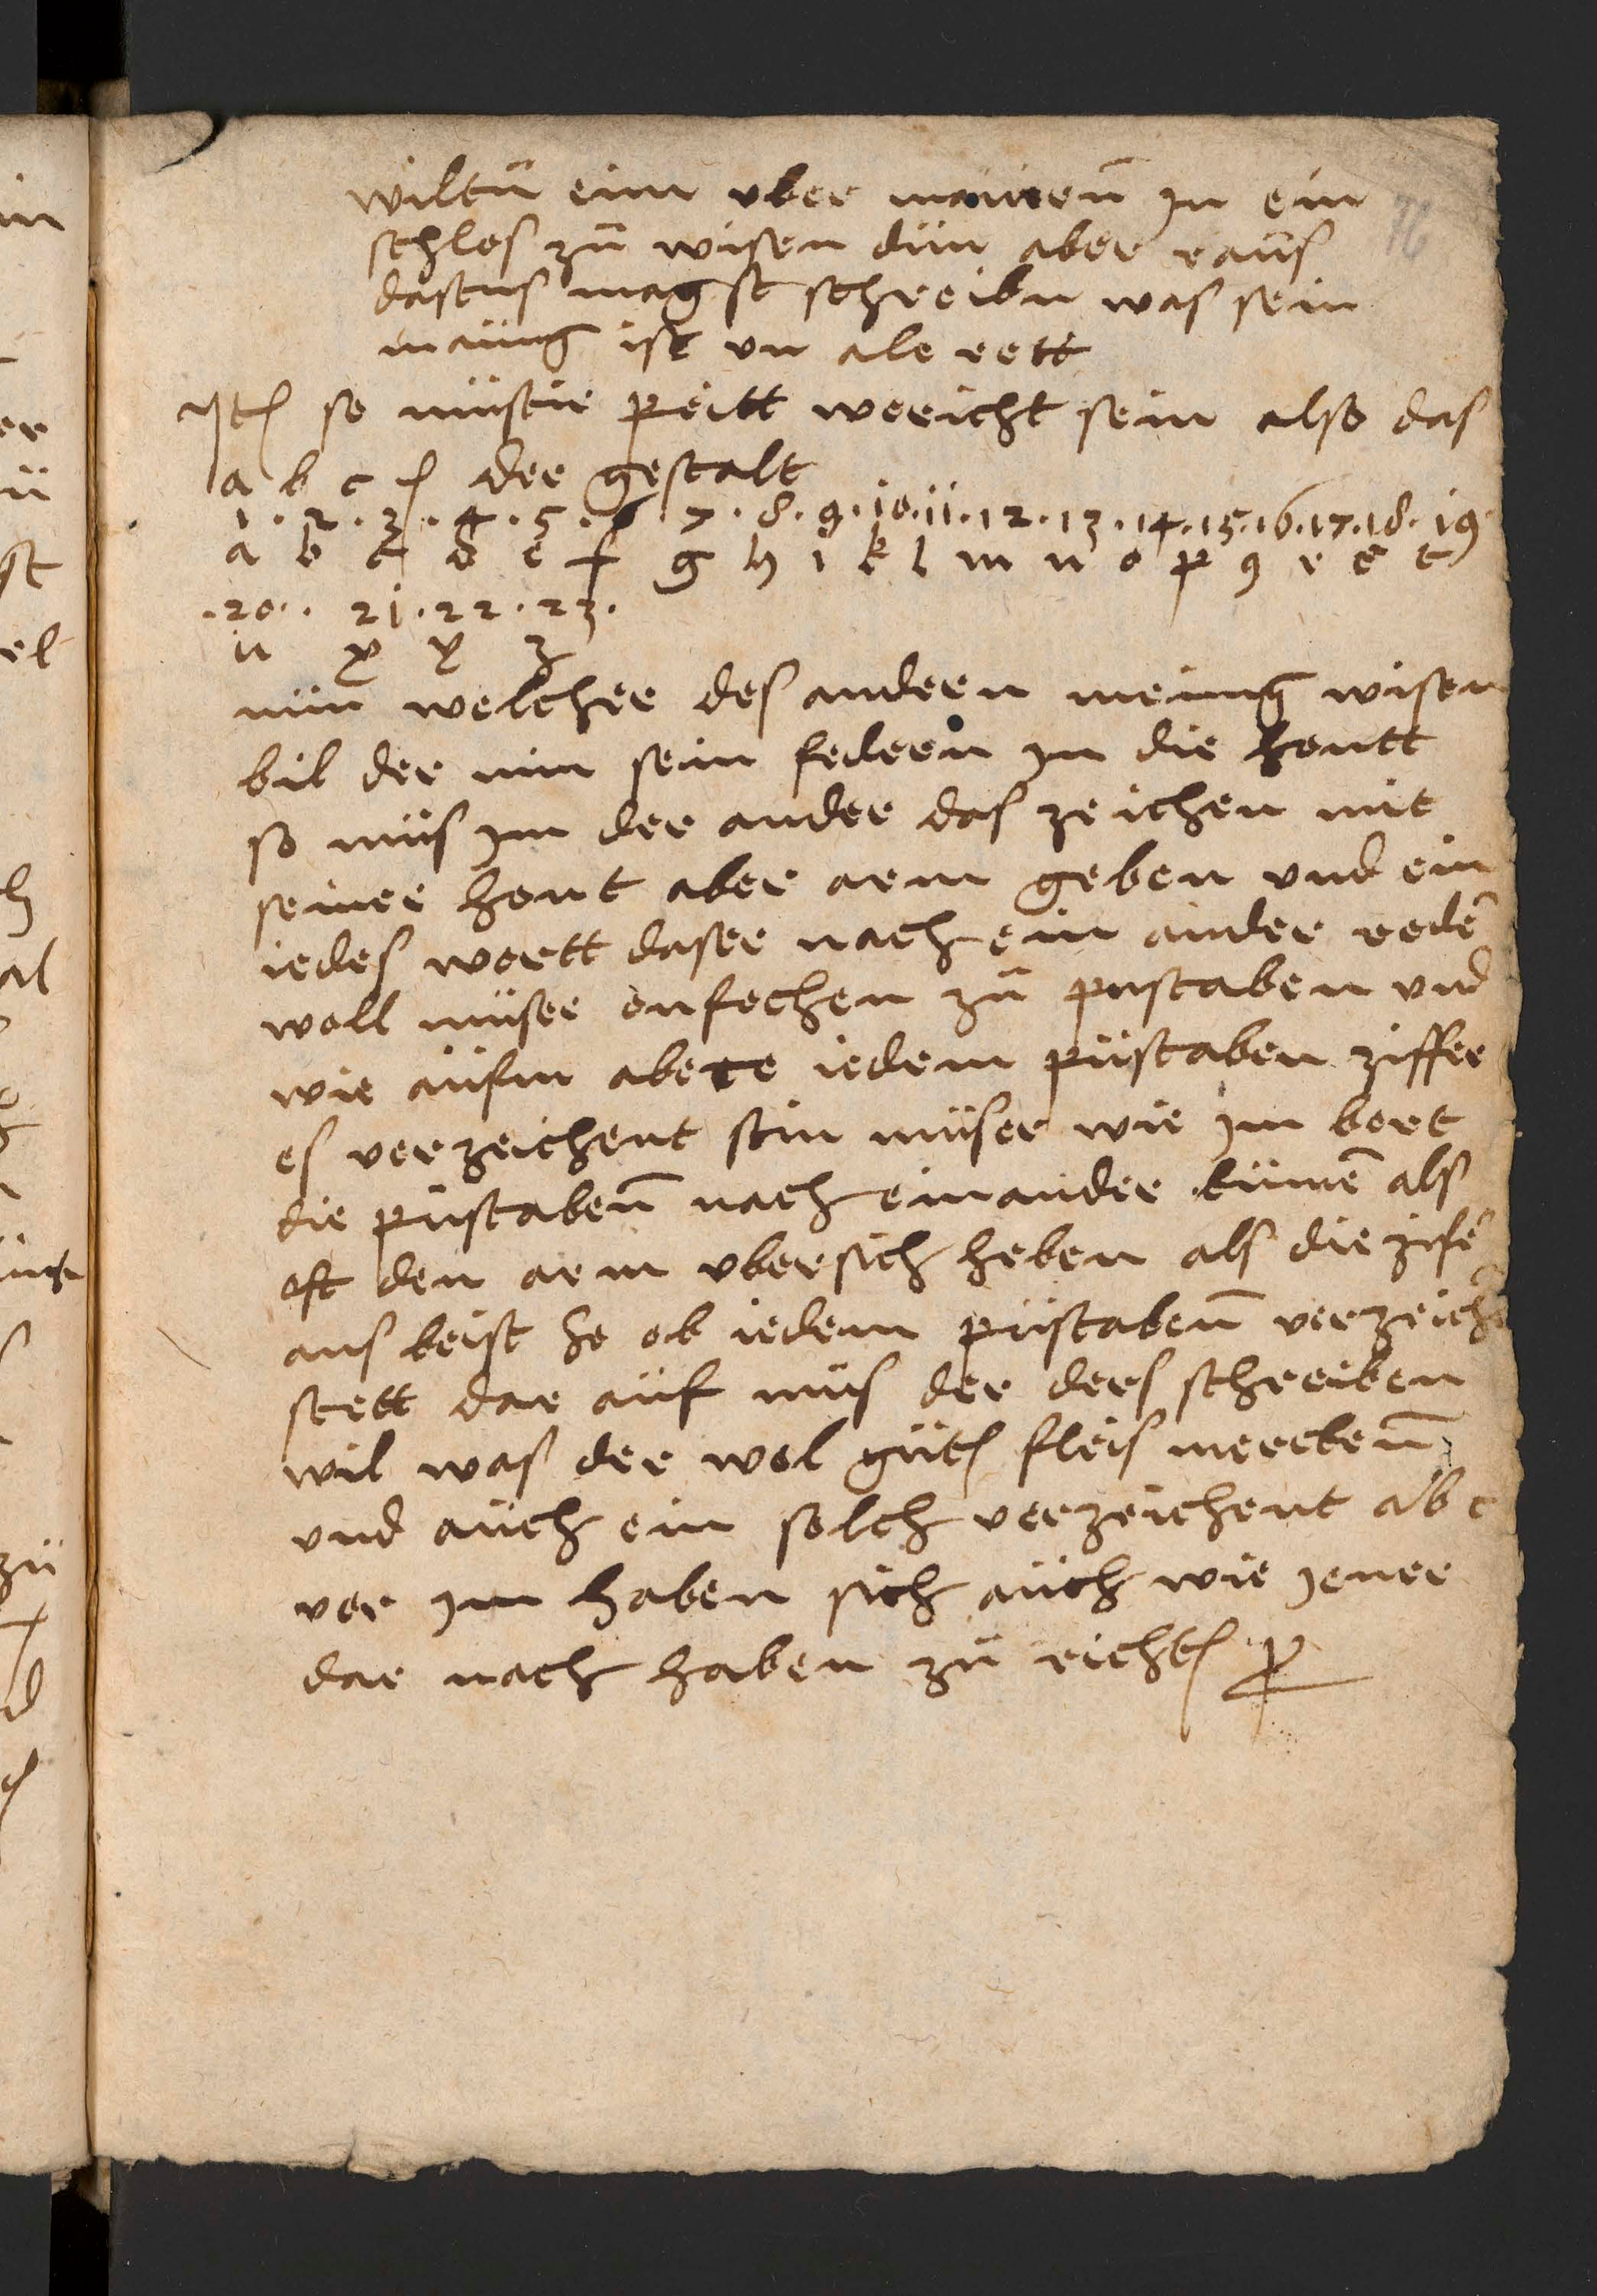 wiltu eim uber maueren in ein
schlos zu wisen dun aber raus
dastus magst schreibn was sein
mäung ist on ale rett
Jtem so müseir peitt wericht sein also das
a b c der gestalt
1 . 2 . 3 . 4 . 5 . 6 7 . 8 . 9 . 10 . 11 . 12 . 13 . 14 . 15 . 16 . 17 . 18 . 19
a b c d e f g h i k l m n o p q r s t
. 20 . . 21 . 22 . 23 .
u x y z
nün welcher des andern meinug wisen
bil der nim sein federn in die hontt
so mus im der ander das zeichen mit
seiner hont aber arm geben und ein
iedes wortt daser nach ein ander reden
woll müser onfechen zu pustaben und
wie aüfm abece iedem püstaben ziffer
es verzeichent sein müser wie im bort
die püstaben nach einander kumen als
oft den arm ubersich heben als die zifer
aus beist so ob iedem püstaben verzeich
stett dar aüf mus der ders schreiben
wil was der wol gütn fleis mercken
und auch ein solch verzeichent ab c
vor im haben sich auch wie jener
dar nach haben zu richten